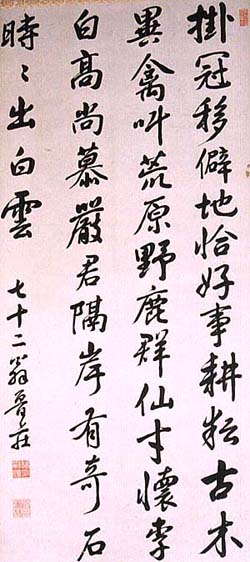 掛冠移僻地恰好事耕耘古木
異禽叫荒原野鹿群仙才懷李
白高尚慕嚴君隔岸有奇石
時〻出白雲
七十二翁